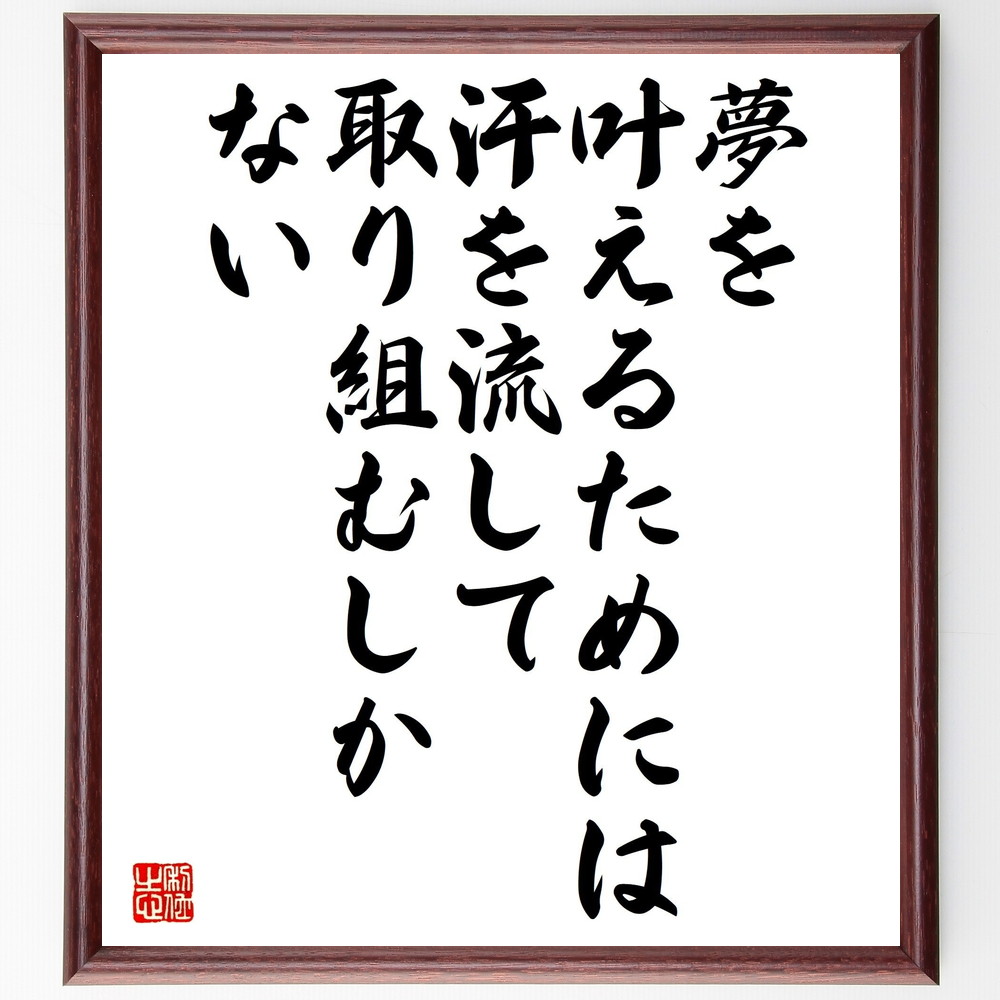 夢を
叶えるためには
汗を流して
取り組むしか
ない